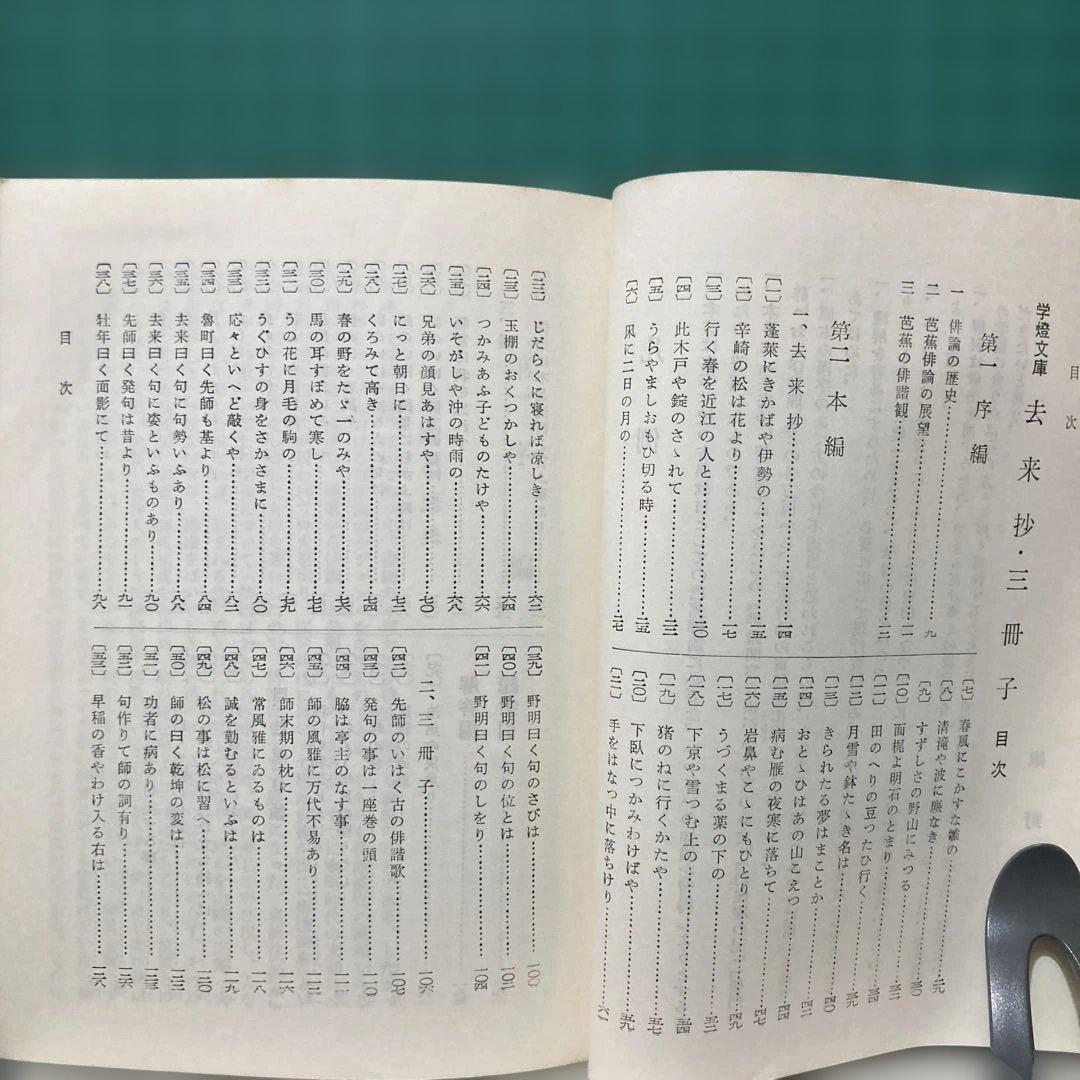 目次
学燈文庫 去来抄・三冊子 目次
第一 序編
一 俳論の歴史…………九
二 芭蕉俳論の展望…………一一
三 芭蕉の俳諧観…………一三
第二 本編
一、去来抄…………一四
〔一〕 蓬萊にきかばや伊勢の…………一五
〔二〕 辛崎の松は花より…………一七
〔三〕 行く春を近江の人と…………二〇
〔四〕 此木戸や錠のさゝれて…………二三
〔五〕 うらやましおもひ切る時…………二五
〔六〕 凩に二日の月の…………二七
〔七〕 春風にこかすな雛の…………二九
〔八〕 清滝や波に塵なき…………三〇
〔九〕 すずしさの野山にみつる…………三二
〔一〇〕 面梶よ明石のとまり…………三三
〔一一〕 田のへりの豆つたひ行く…………三四
〔一二〕 月雪や鉢たゝき名は…………三九
〔一三〕 きられたる夢はまことか…………四〇
〔一四〕 おとゝひはあの山こえつ…………四二
〔一五〕 病む雁の夜寒に落ちて…………四四
〔一六〕 岩鼻やこゝにもひとり…………四七
〔一七〕 うづくまる薬の下の…………四九
〔一八〕 下京や雪つむ上の…………五二
〔一九〕 猪のねに行くかたや…………五四
〔二〇〕 下臥につかみわけばや…………五七
〔二一〕 手をはなつ中に落ちけり…………五九
六一
〔二二〕 じだらくに寝れば凉しき…………六二
〔二三〕 玉棚のおくなつかしや…………六四
〔二四〕 つかみあふ子どものたけや…………六六
〔二五〕 いそがしや沖の時雨の…………六八
〔二六〕 兄弟の顔見あはすや…………七〇
〔二七〕 にっと朝日に…………七二
〔二八〕 くろみて高き…………七四
〔二九〕 春の野をたゞ一のみや…………七六
〔三〇〕 馬の耳すぼめて寒し…………七七
〔三一〕 うの花に月毛の駒の…………七九
〔三二〕 うぐひすの身をさかさまに…………八〇
〔三三〕 応々といへど敲くや…………八二
〔三四〕 魯町曰く先師も基より…………八四
〔三五〕 去来曰く句に句勢いふあり…………八八
〔三六〕 去来曰く句に姿といふものあり…………九〇
〔三七〕 先師曰く発句は昔より…………九一
〔三八〕 牡年曰く面影にて…………九八
〔三九〕 野明曰く句のさびは…………一〇〇
〔四〇〕 野明曰く句の位とは…………一〇二
〔四一〕 野明曰く句のしをり…………一〇四
二、三冊子…………一〇六
〔四二〕 先師のいはく古の俳諧歌…………一〇七
〔四三〕 発句の事は一座巻の頭…………一一〇
〔四四〕 脇は亭主のなす事…………一一一
〔四五〕 師の風雅に万代不易あり…………一一二
〔四六〕 師末期の枕に…………一一六
〔四七〕 常風雅にゐるものは…………一一八
〔四八〕 誠を勤むるといふは…………一一九
〔四九〕 松の事は松に習へ…………一二〇
〔五〇〕 師の曰く乾坤の変は…………一二二
〔五一〕 功者に病あり…………一二三
〔五二〕 句作りて師の詞有り…………一二六
〔五三〕 早稲の香やわけ入る右は…………一二八
目次